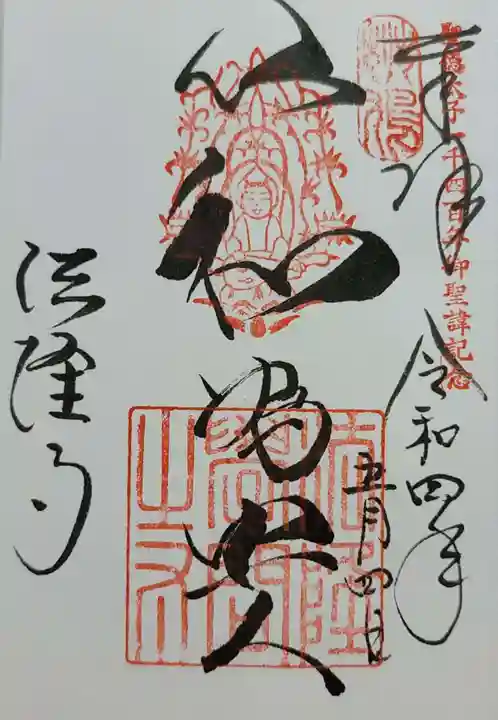 聖徳太子一千四百年御聖諱記念
奉拝
令和四年
五月四日
以和為貴
法隆寺